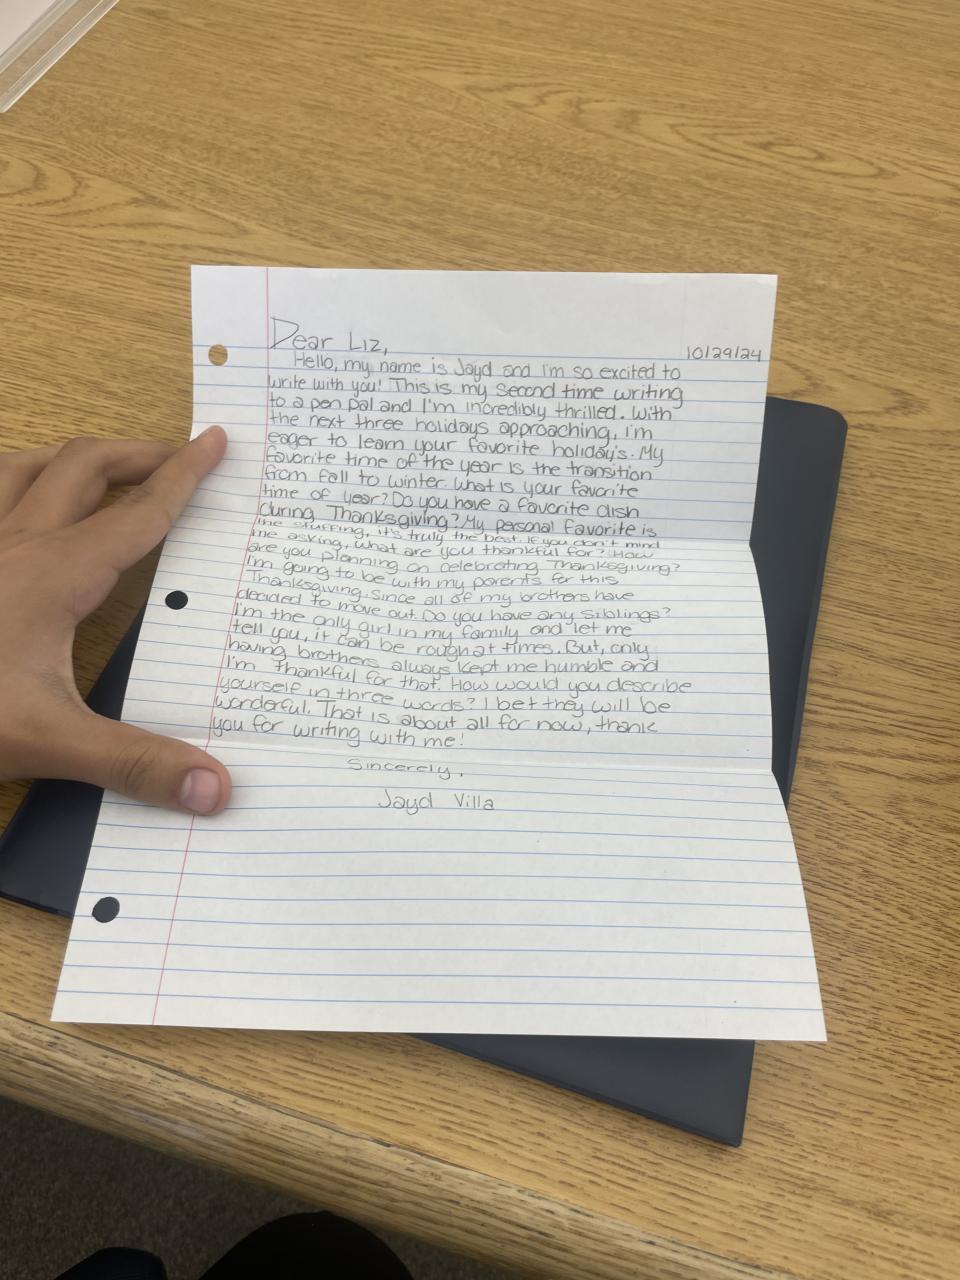 Dear Liz,
10/29/24
Hello, my name is Jayd and I'm so excited to
write with you! This is my second time writing
to a pen pal and I'm incredibly thrilled. With
the next three holidays approaching, I'm
eager to learn your favorite holiday's. My
favorite time of the year is the transition
from fall to winter. what is your favorite
time of year? Do you have a favorite dish
during Thanksgiving? My personal favorite is
the stuffing, it's truly the best. If you don't mind
me asking, what are you thankful for? How
are you planning on celebrating Thanksgiving?
I'm going to be with my parents for this
Thanksgiving, since all of my brothers have
decided to move out. Do you have any siblings?
I'm the only girl in my family and let me
tell you, it can be rough at times. But, only
having brothers always kept me humble and
I'm thankful for that. How would you describe
yourself in three words? I bet they will be
wonderful. That is about all for now, thank
you for writing with me!
Sincerely,
Jayd Villa